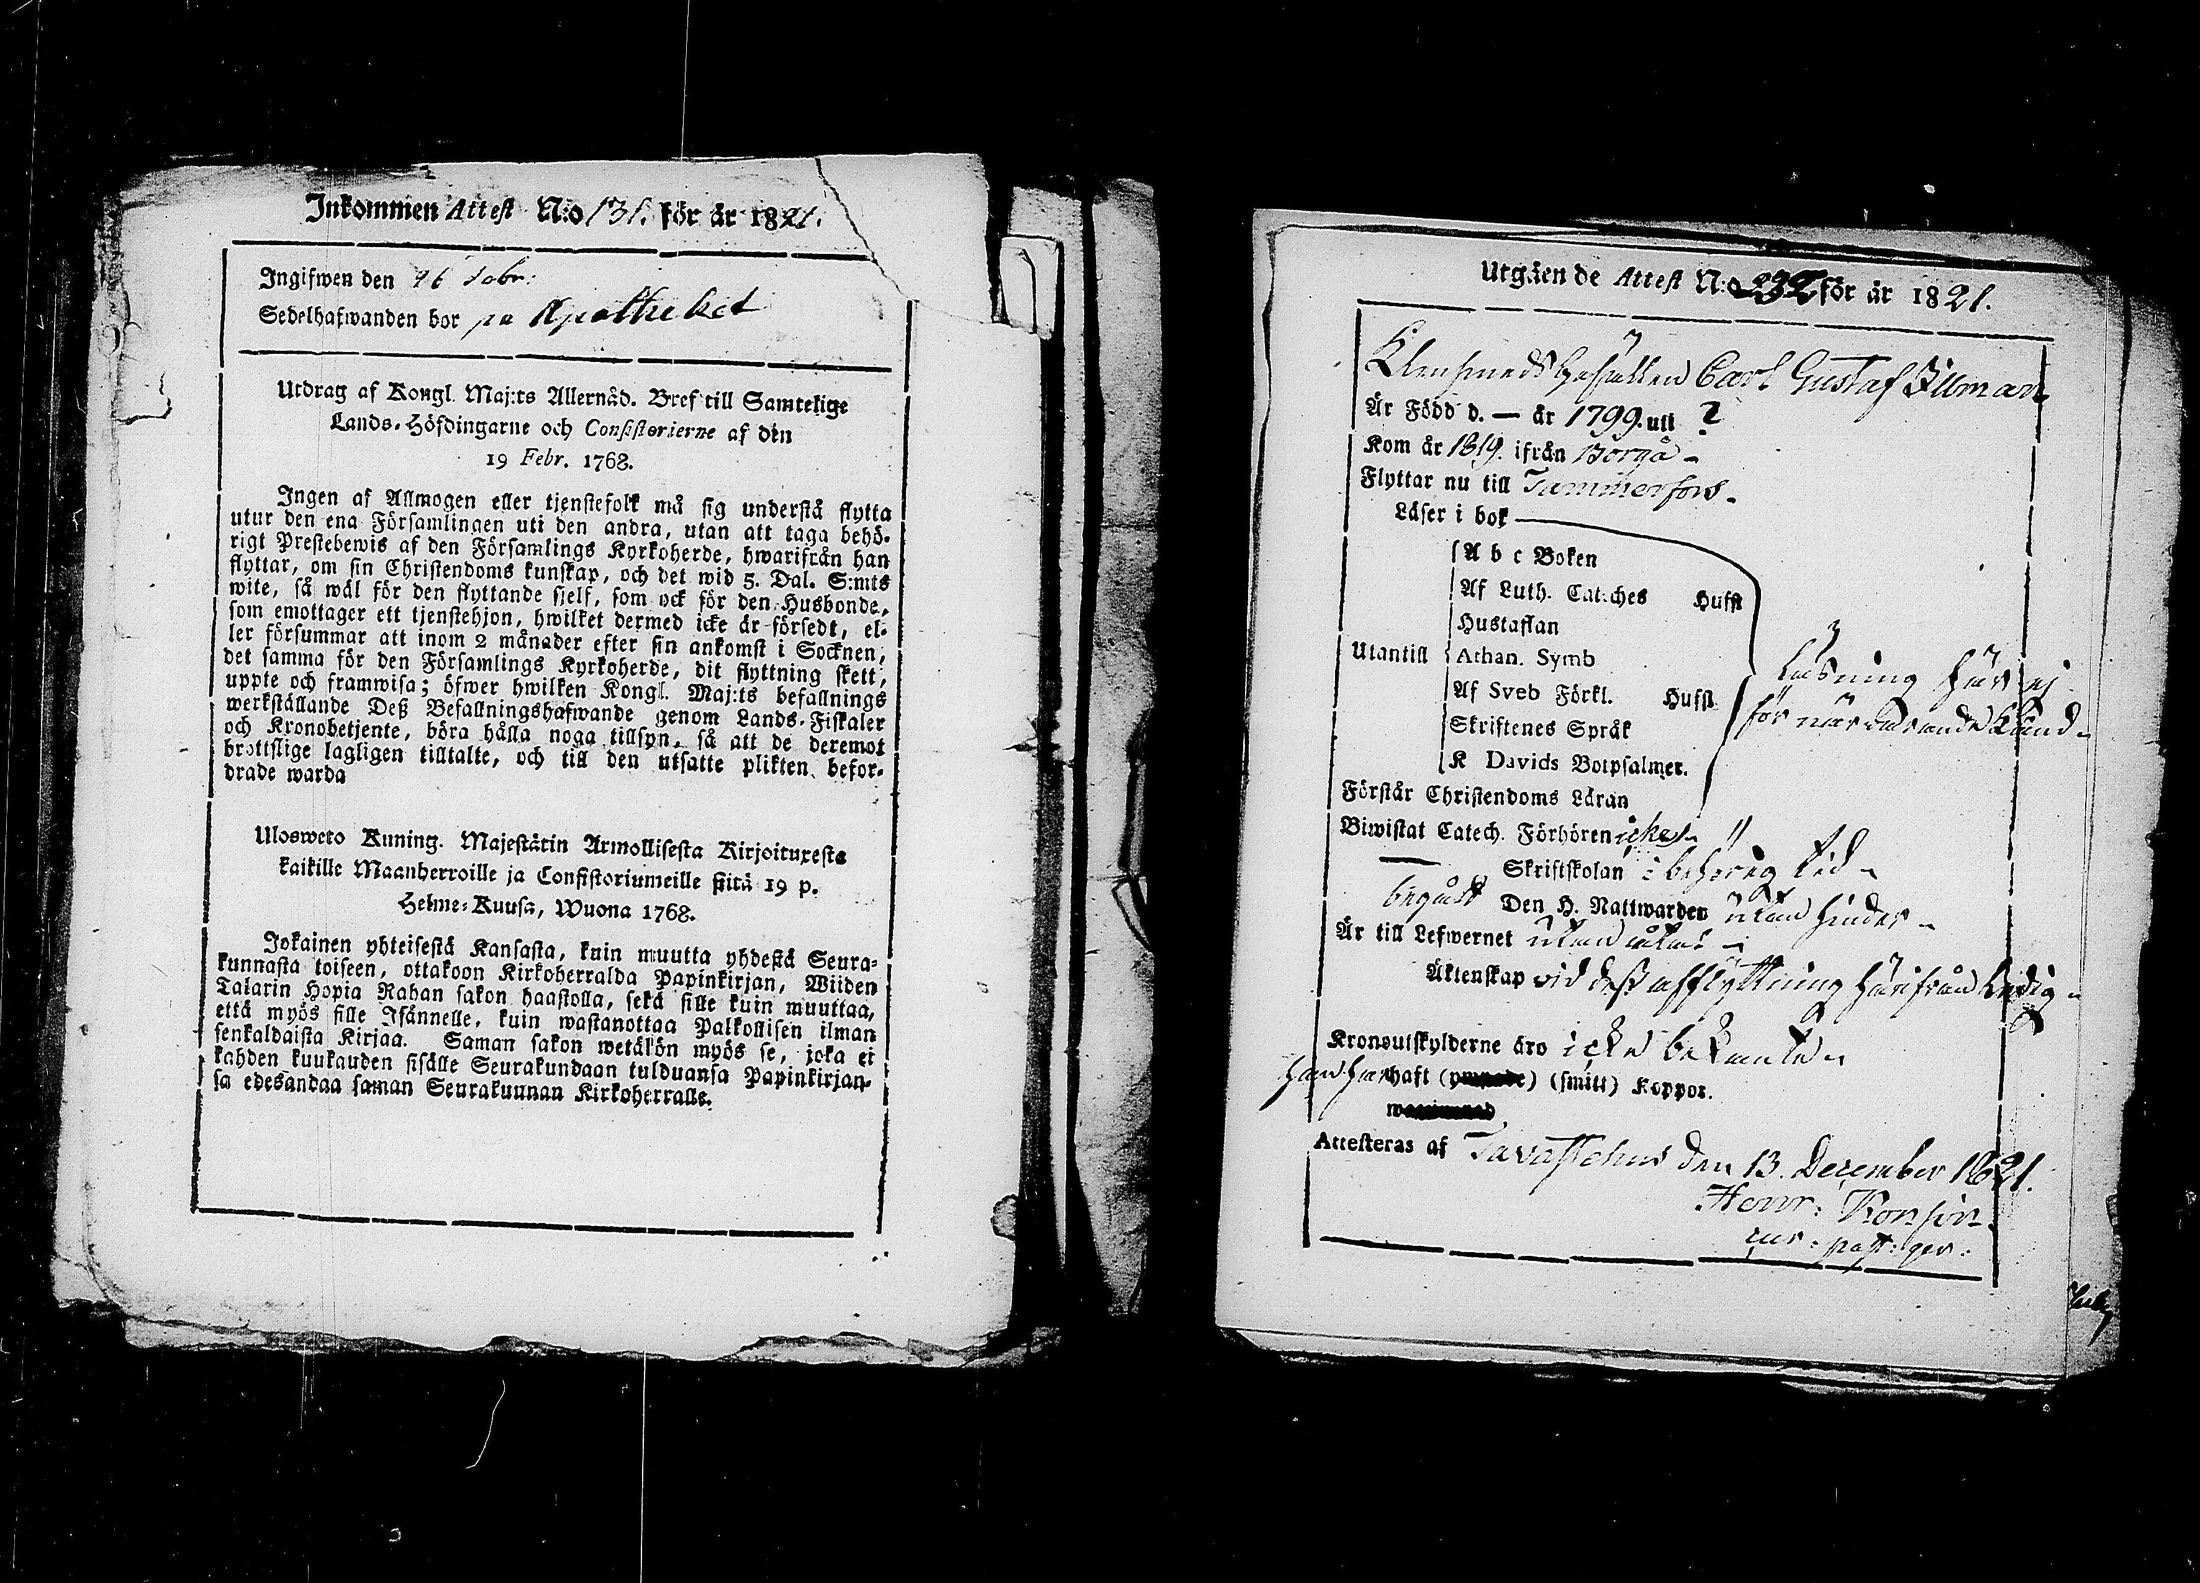 Inkommen Attest N:o 131. för år 1821.
Ingifwen den 16
Sedelhafwanden bor på Apotheket
Utdrag af Kongl. Maj:ts Allernåd. Bref till Samtelige
Lands-Höfdingarne och Consistorierne af den
19 Febr. 1768.
Ingen af Allmogen eller tjenstefolk må sig understå flytta
utur den ena Församlingen uti den andra, utan att taga behö-
rigt Prestebewis af den Församlings Kyrkoherde, hwarifrån han
flyttar, om sin Christendoms kunskap, och det wid 5. Dal. S:mts
wite, så wäl för den flyttande sjelf, som ock för den Husbonde,
som emottager ett tjenstehjon, hwilket dermed icke är försedt, el-
ler försummar att inom 2 månader efter sin ankomst i Socknen,
det samma för den Församlings Kyrkoherde, dit flyttning skett,
uppte och framwisa; öfwer hwilken Kongl. Maj:ts befallnings
werkställande Deß Befallningshafwande genom Lands-Fiskaler
och Kronobetjente, böra hålla noga tillsyn, så att de deremot
brottslige lagligen tilltalte, och till den utsatte plikten befor-
drade warda
Ulosweto Kuning. Majestätin Armollisesta Kirjoituxesta
kaikille Maanherroille ja Consistoriumeille siitä 19 p.
Helme-Kuusa, Wuona 1768.
Jokainen yhteisestä Kansasta, kuin muutta yhdestä Seura-
kunnasta toiseen, ottakoon Kirkoherralda Papinkirjan, Wiiden
Talarin Hopia Rahan sakon haastolla, sekä sille kuin muuttaa,
että myös sille Isännelle, kuin wastanottaa Palkollisen ilman
senkaldaista Kirjaa. Saman sakon wetäkön myös se, joka ei
kahden kuukauden sisälle Seurakundaan tulduansa Papinkirjan-
sa edesandaa saman Seurakunnan Kirkoherralle.
Utgåen de Attest N:o 232 för år 1821.
Klensmeds Gesällen Carl Gustaf Illman
Är Född d. — år 1799. uti ?
Kom år 1819. ifrån Borgå -
Flyttar nu till Tammerfors -
Läser i bok
A b c Boken
Af Luth. Catches Hufst
Hustaflan
Utantill Athan. Symb
Af Sveb Förkl. Hufst
Skriftenes Språk
K Davids Botpsalmer.
Läsning här ej
för närvarande känd -
Förstår Christendoms Läran
Biwistat Catech. Förhören icke
Skriftskolan i behörig tid -
begått Den H. Nattwarden utan hinder -
Är till Lefwernet utan
Äktenskap vid dess afflyttning härifrån ledig -
Kronoutskylderne äro icke bekante -
han har haft (ympade) (smitt) Koppor.
Attesteras af Tavastehus den 13. December 1821.
Henr:
past: ger: